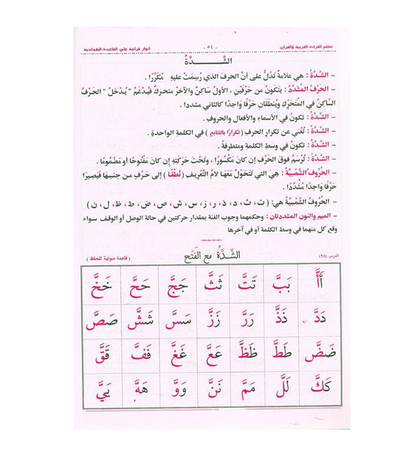 معلم القراءة العربية والقرآن - ٥٤ - أنوار قرآنية على القاعدة البغدادية
الشَّدَّةُ
– الشَّدَّةُ : هي علامةٌ تدلُّ على أنَّ الحرفَ الذي رُسِمَتْ عليهِ مُكَرَّرًا .
– الحَرْفُ المُشَدَّدُ : يتكونُ من حَرْفَينِ ، الأولُ ساكِنٌ والآخَرُ متحركٌ فيُدغَمُ " يدْخُلُ " الحَرْفُ
السَّاكِنُ في المُتَحَرِّكِ ويُنطَقَانِ حَرْفًا واحِدًا كالثاني مشددا .
– الشَّدَّةُ : تكونُ في الأسماءِ والأفعالِ والحروفِ .
– الشَّدَّةُ : تُغني عن تكرارِ الحرفِ ( تكرارًا بالتتابع ) في الكلمةِ الواحدةِ .
– الشَّدَّةُ : تكونُ في وسطِ الكلمةِ ومتطرفةً .
– الشَّدَّةُ : تُرسَمُ فوقَ الحَرْفِ إن كانَ مَكْسُورًا ، وتَحْتَ حَرَكَتِهِ إن كانَ مَفْتُوحًا أو مَضْمُومًا .
– الحُروفُ الشَّمْسِيَّةُ : هِيَ التي تَتَحَوَّلُ مَعَهَا لامُ التَّعْرِيفِ ( نُطْقًا ) إلى حَرْفٍ من جنسِهَا فَيَصِيرَا
حَرْفًا واحِدًا مُشَدَّدًا .
– الحُرُوفُ الشَّمْسِيةُ هي: (ت ، ث ، د ، ذ ، ر ، ز ، س ، ش ، ص ، ض ، ط ، ظ ، ل ، ن )
– الميم والنون المشددتان : وحكمهما وجوب الغنة بمقدار حركتين في حالة الوصل أو الوقف سواء
وقع كل منهما في وسط الكلمة أو في آخرها
الدرس (٢٨) الشَّدَّةُ مع الفَتْحِ ( قاعدة صوتية للحفظ )
أَأَّ بَبَّ تَتَّ ثَثَّ جَجَّ حَحَّ خَخَّ
دَدَّ ذَذَّ رَرَّ زَزَّ سَسَّ شَشَّ صَصَّ
ضَضَّ طَطَّ ظَظَّ عَعَّ غَغَّ فَفَّ قَقَّ
كَكَّ لَلَّ مَمَّ نَنَّ وَوَّ هَهَّ يَيَّ